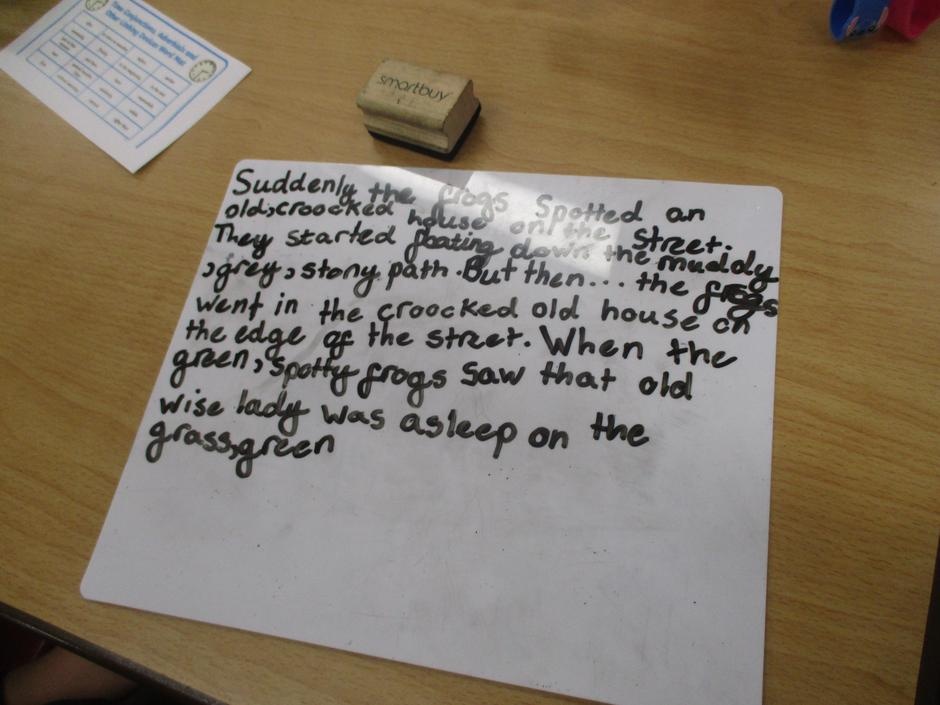 Time Conjunctions, Adverbials and
Other Linking Devices Word Mat
smartbuy
Suddenly the frogs Spotted an
old,croocked house on the street.
They started floating down the muddy
,grey,stony path.But then... the frogs
went in the croocked old house on
the edge of the street. When the
green, Spotty frogs saw that old
wise lady was asleep on the
grass,green